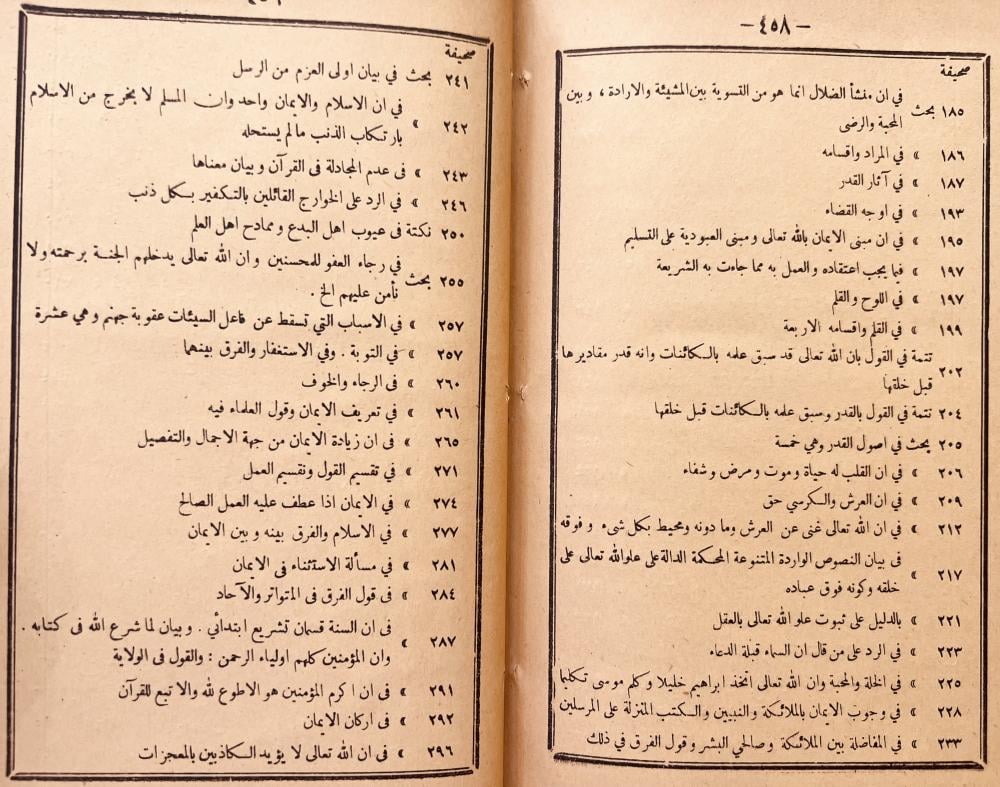 — ٤٥٨ —
صحيفة
١٨٥ بحث في ان منشأ الضلال انما هو من التسوية بين المشيئة والارادة ، وبين
المحبة والرضى
١٨٦ » في المراد واقسامه
١٨٧ » في آثار القدر
١٩٣ » في اوجه القضاء
١٩٥ » في ان مبنى الايمان بالله تعالى ومبنى العبودية على التسليم
١٩٧ » فيما يجب اعتقاده والعمل به مما جاءت به الشريعة
١٩٧ » في اللوح والقلم
١٩٩ » في القلم واقسامه الاربعة
٢٠٢ تتمة في القول بان الله تعالى قد سبق علمه بالكائنات وانه قدر مقاديرها
قبل خلقها
٢٠٤ تتمة في القول بالقدر وسبق علمه بالكائنات قبل خلقها
٢٠٥ بحث في اصول القدر وهي خمسة
٢٠٦ » في ان القلب له حياة وموت ومرض وشفاء
٢٠٩ » في ان العرش والكرسي حق
٢١٢ » في ان الله تعالى غنى عن العرش وما دونه ومحيط بكل شيء وفوقه
٢١٧ » فى بيان النصوص الواردة المتنوعة المحكمة الدالة على علو الله تعالى على
خلقه وكونه فوق عباده
٢٢١ » بالدليل على ثبوت علو الله تعالى بالعقل
٢٢٣ » في الرد على من قال ان السماء قبلة الدعاء
٢٢٥ » في الخلة والمحبة وان الله تعالى اتخذ ابراهيم خليلا وكلم موسى تكليما
٢٢٨ » في وجوب الايمان بالملائكة والنبيين والكتب المنزلة على المرسلين
٢٣٣ » في المفاضلة بين الملائكة وصالحي البشر وقول الفرق في ذلك
صحيفة
٢٤١ بحث في بيان اولى العزم من الرسل
٢٤٢ » في ان الاسلام والايمان واحد وان المسلم لا يخرج من الاسلام
بارتكاب الذنب مالم يستحله
٢٤٣ » فى عدم المجادلة فى القرآن وبيان معناها
٢٤٦ » في الرد على الخوارج القائلين بالتكفير بكل ذنب
٢٥٠ نكتة فى عيوب اهل البدع وممادح اهل العلم
٢٥٥ بحث في رجاء العفو للمحسنين وان الله تعالى يدخلهم الجنة برحمته ولا
نأمن عليهم الخ .
٢٥٧ » في الاسباب التي تسقط عن فاعل السيئات عقوبة جهنم وهي عشرة
٢٥٧ » في التوبة . وفي الاستغفار والفرق بينهما
٢٦٠ » فى الرجاء والخوف
٢٦١ » في تعريف الايمان وقول العلماء فيه
٢٦٥ » فى ان زيادة الايمان من جهة الاجمال والتفصيل
٢٧١ » في تقسيم القول وتقسيم العمل
٢٧٤ » في الايمان اذا عطف عليه العمل الصالح
٢٧٧ » في الاسلام والفرق بينه وبين الايمان
٢٨١ » في مسألة الاستثناء فى الايمان
٢٨٤ » فى قول الفرق فى المتواتر والآحاد
٢٨٧ » فى ان السنة قسمان تشريع ابتدائي . وبيان لما شرع الله فى كتابه .
وان المؤمنين كلهم اولياء الرحمن : والقول فى الولاية
٢٩١ » فى ان اكرم المؤمنين هو الاطوع لله والاتبع للقرآن
٢٩٢ » فى اركان الايمان
٢٩٦ » فى ان الله تعالى لا يؤيد الكاذبين بالمعجزات